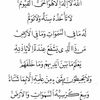 اللَّهُ لَا إِلَٰهَ إِلَّا هُوَ الْحَيُّ الْقَيُّومُ
لَا تَأْخُذُهُ سِنَةٌ وَلَا نَوْمٌ
لَهُ مَا فِي السَّمَاوَاتِ وَمَا فِي الْأَرْضِ
مَنْ ذَا الَّذِي يَشْفَعُ عِنْدَهُ إِلَّا بِإِذْنِهِ
يَعْلَمُ مَا بَيْنَ أَيْدِيهِمْ وَمَا خَلْفَهُمْ
وَلَا يُحِيطُونَ بِشَيْءٍ مِنْ عِلْمِهِ إِلَّا بِمَا شَاءَ
وَسِعَ كُرْسِيُّهُ السَّمَاوَاتِ وَالْأَرْضَ